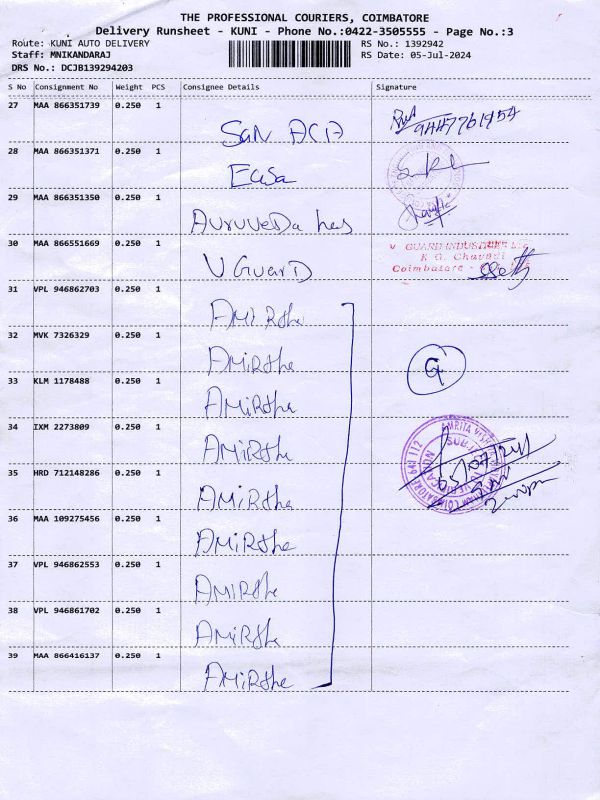 THE PROFESSIONAL COURIERS, COIMBATORE
Delivery Runsheet - KUNI - Phone No.:0422-3505555 - Page No.:3
Route: KUNI AUTO DELIVERY RS No.: 1392942
Staff: MNIKANDARAJ RS Date: 05-Jul-2024
DRS No.: DCJB139294203
S No Consignment No Weight PCS Consignee Details Signature
27 MAA 866351739 0.250 1
SAN
28 MAA 866351371 0.250 1
29 MAA 866351350 0.250 1
AvruveDa
30 MAA 866551669 0.250 1
V GuarD
V GUARD INDUSTRIES
K G. Chavadi
Coimbatore -
31 VPL 946862703 0.250 1
AMiRthe
32 MVK 7326329 0.250 1
AMiRthe
33 KLM 1178488 0.250 1
AMiRthe
34 IXM 2273809 0.250 1
AMiRthe
35 HRD 712148286 0.250 1
AMiRthe
36 MAA 109275456 0.250 1
AMiRthe
37 VPL 946862553 0.250 1
AMiRthe
38 VPL 946861702 0.250 1
AMiRthe
39 MAA 866416137 0.250 1
AMiRthe